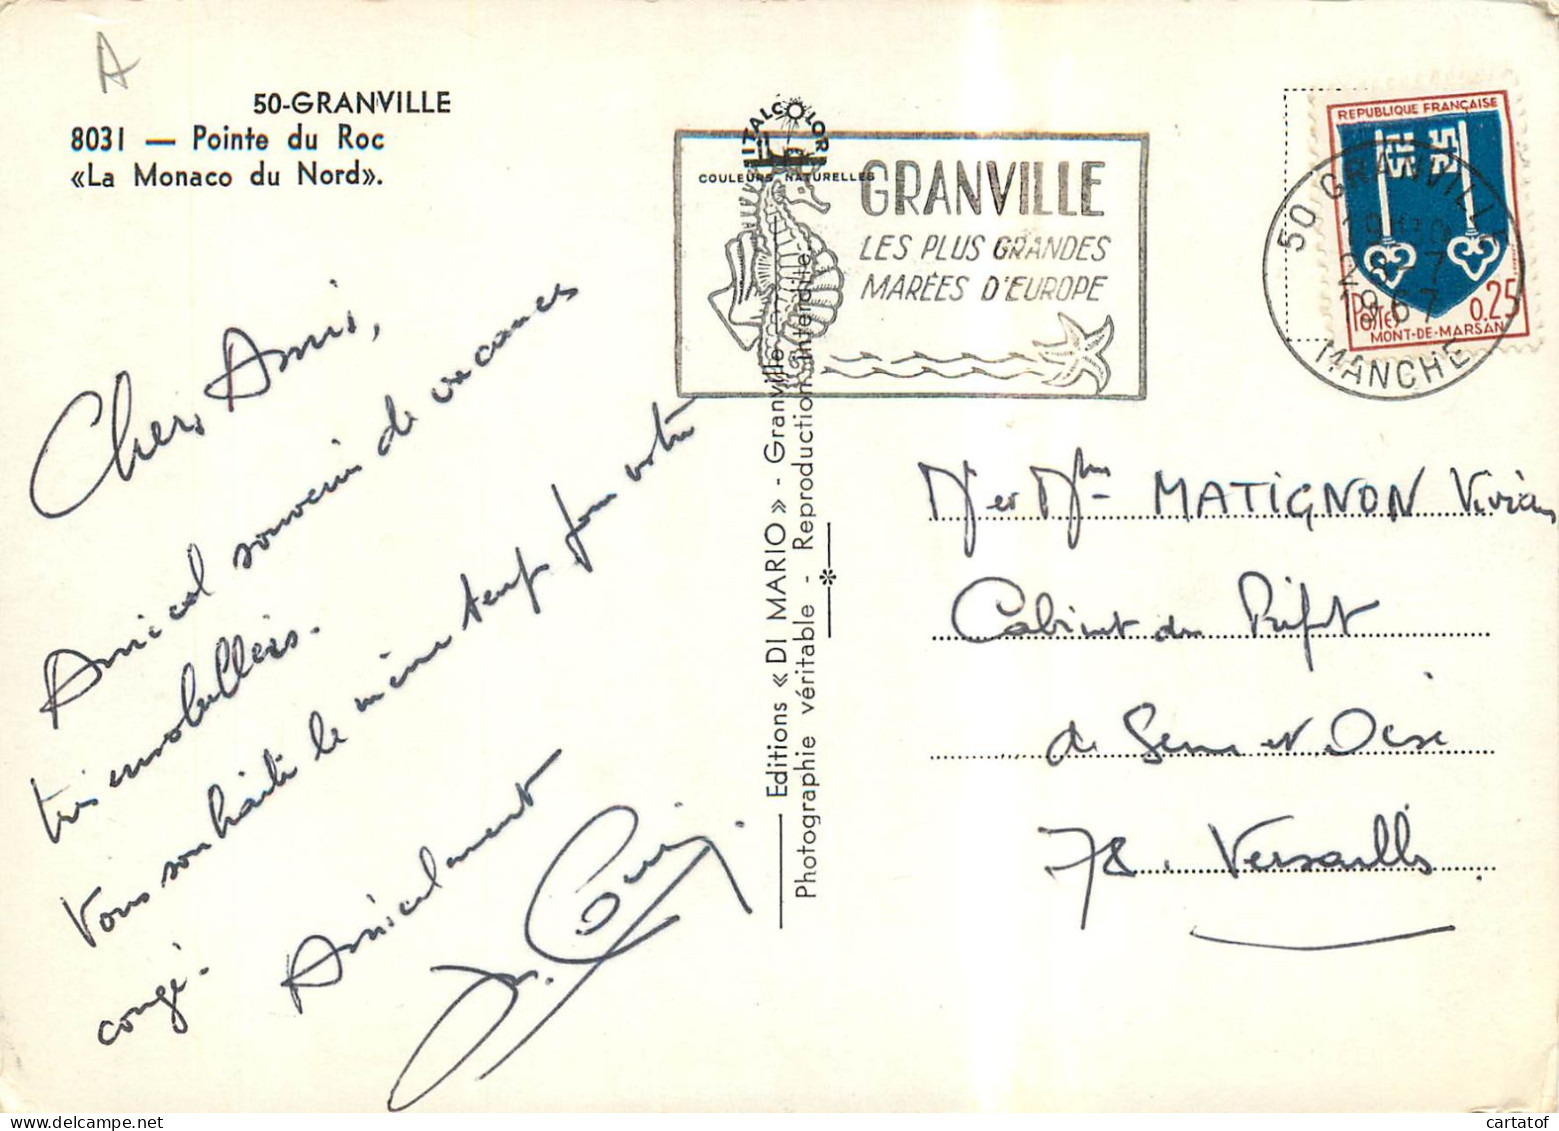 A
50-GRANVILLE
8031 — Pointe du Roc
«La Monaco du Nord».
ITALCOLOR
COULEURS NATURELLES
GRANVILLE
LES PLUS GRANDES
MARÉES D'EUROPE
REPUBLIQUE FRANÇAISE
Postes 0,25
MONT-DE-MARSAN
50 GRANVILLE
1967
MANCHE
Chers Amis,
Amical souvenir de vacances
très ensoleillées.
Vous souhaite le même temps pour votre
congé.
Amicalement
Editions « DI MARIO » - Granville
Photographie véritable - Reproduction interdite
Mr et Mme MATIGNON Vivian
Cabinet du Préfet
de Seine et Oise
78. Versailles
cartatof